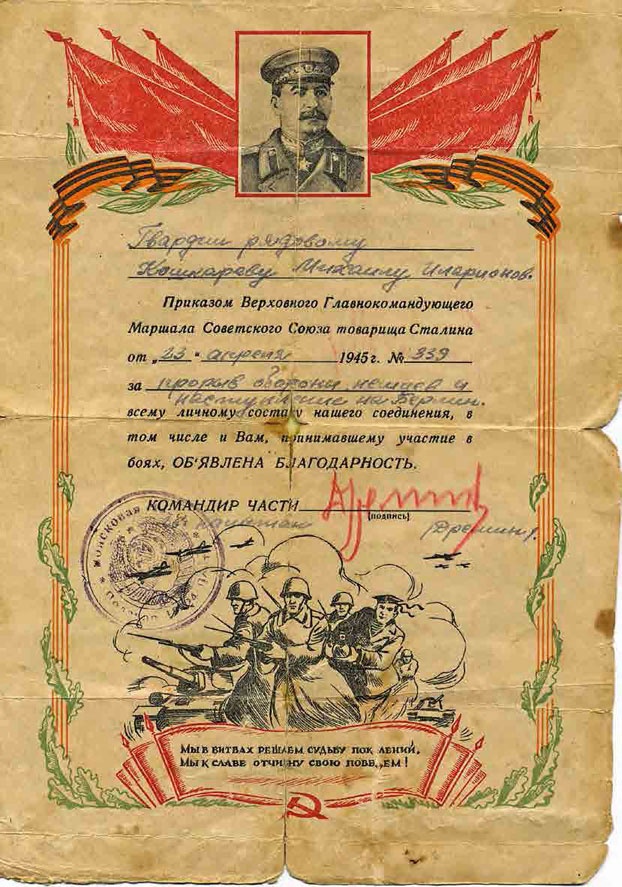 Гвардии рядовому
Кошкареву Михаилу Иларионов.
Приказом Верховного Главнокомандующего
Маршала Советского Союза товарища Сталина
от „23“ апреля 1945 г. № 339
за прорыв оборони немцев и
наступление на Берлин.
всему личному составу нашего соединения, в
том числе и Вам, принимавшему участие в
боях, ОБ'ЯВЛЕНА БЛАГОДАРНОСТЬ.
КОМАНДИР ЧАСТИ
(подпись)
гв. капитан (Дремин).
Войсковая
МЫ В БИТВАХ РЕШАЕМ СУДЬБУ ПОК ЛЕНИЙ,
МЫ К СЛАВЕ ОТЧИЗНУ СВОЮ ПОВЕДЕМ!